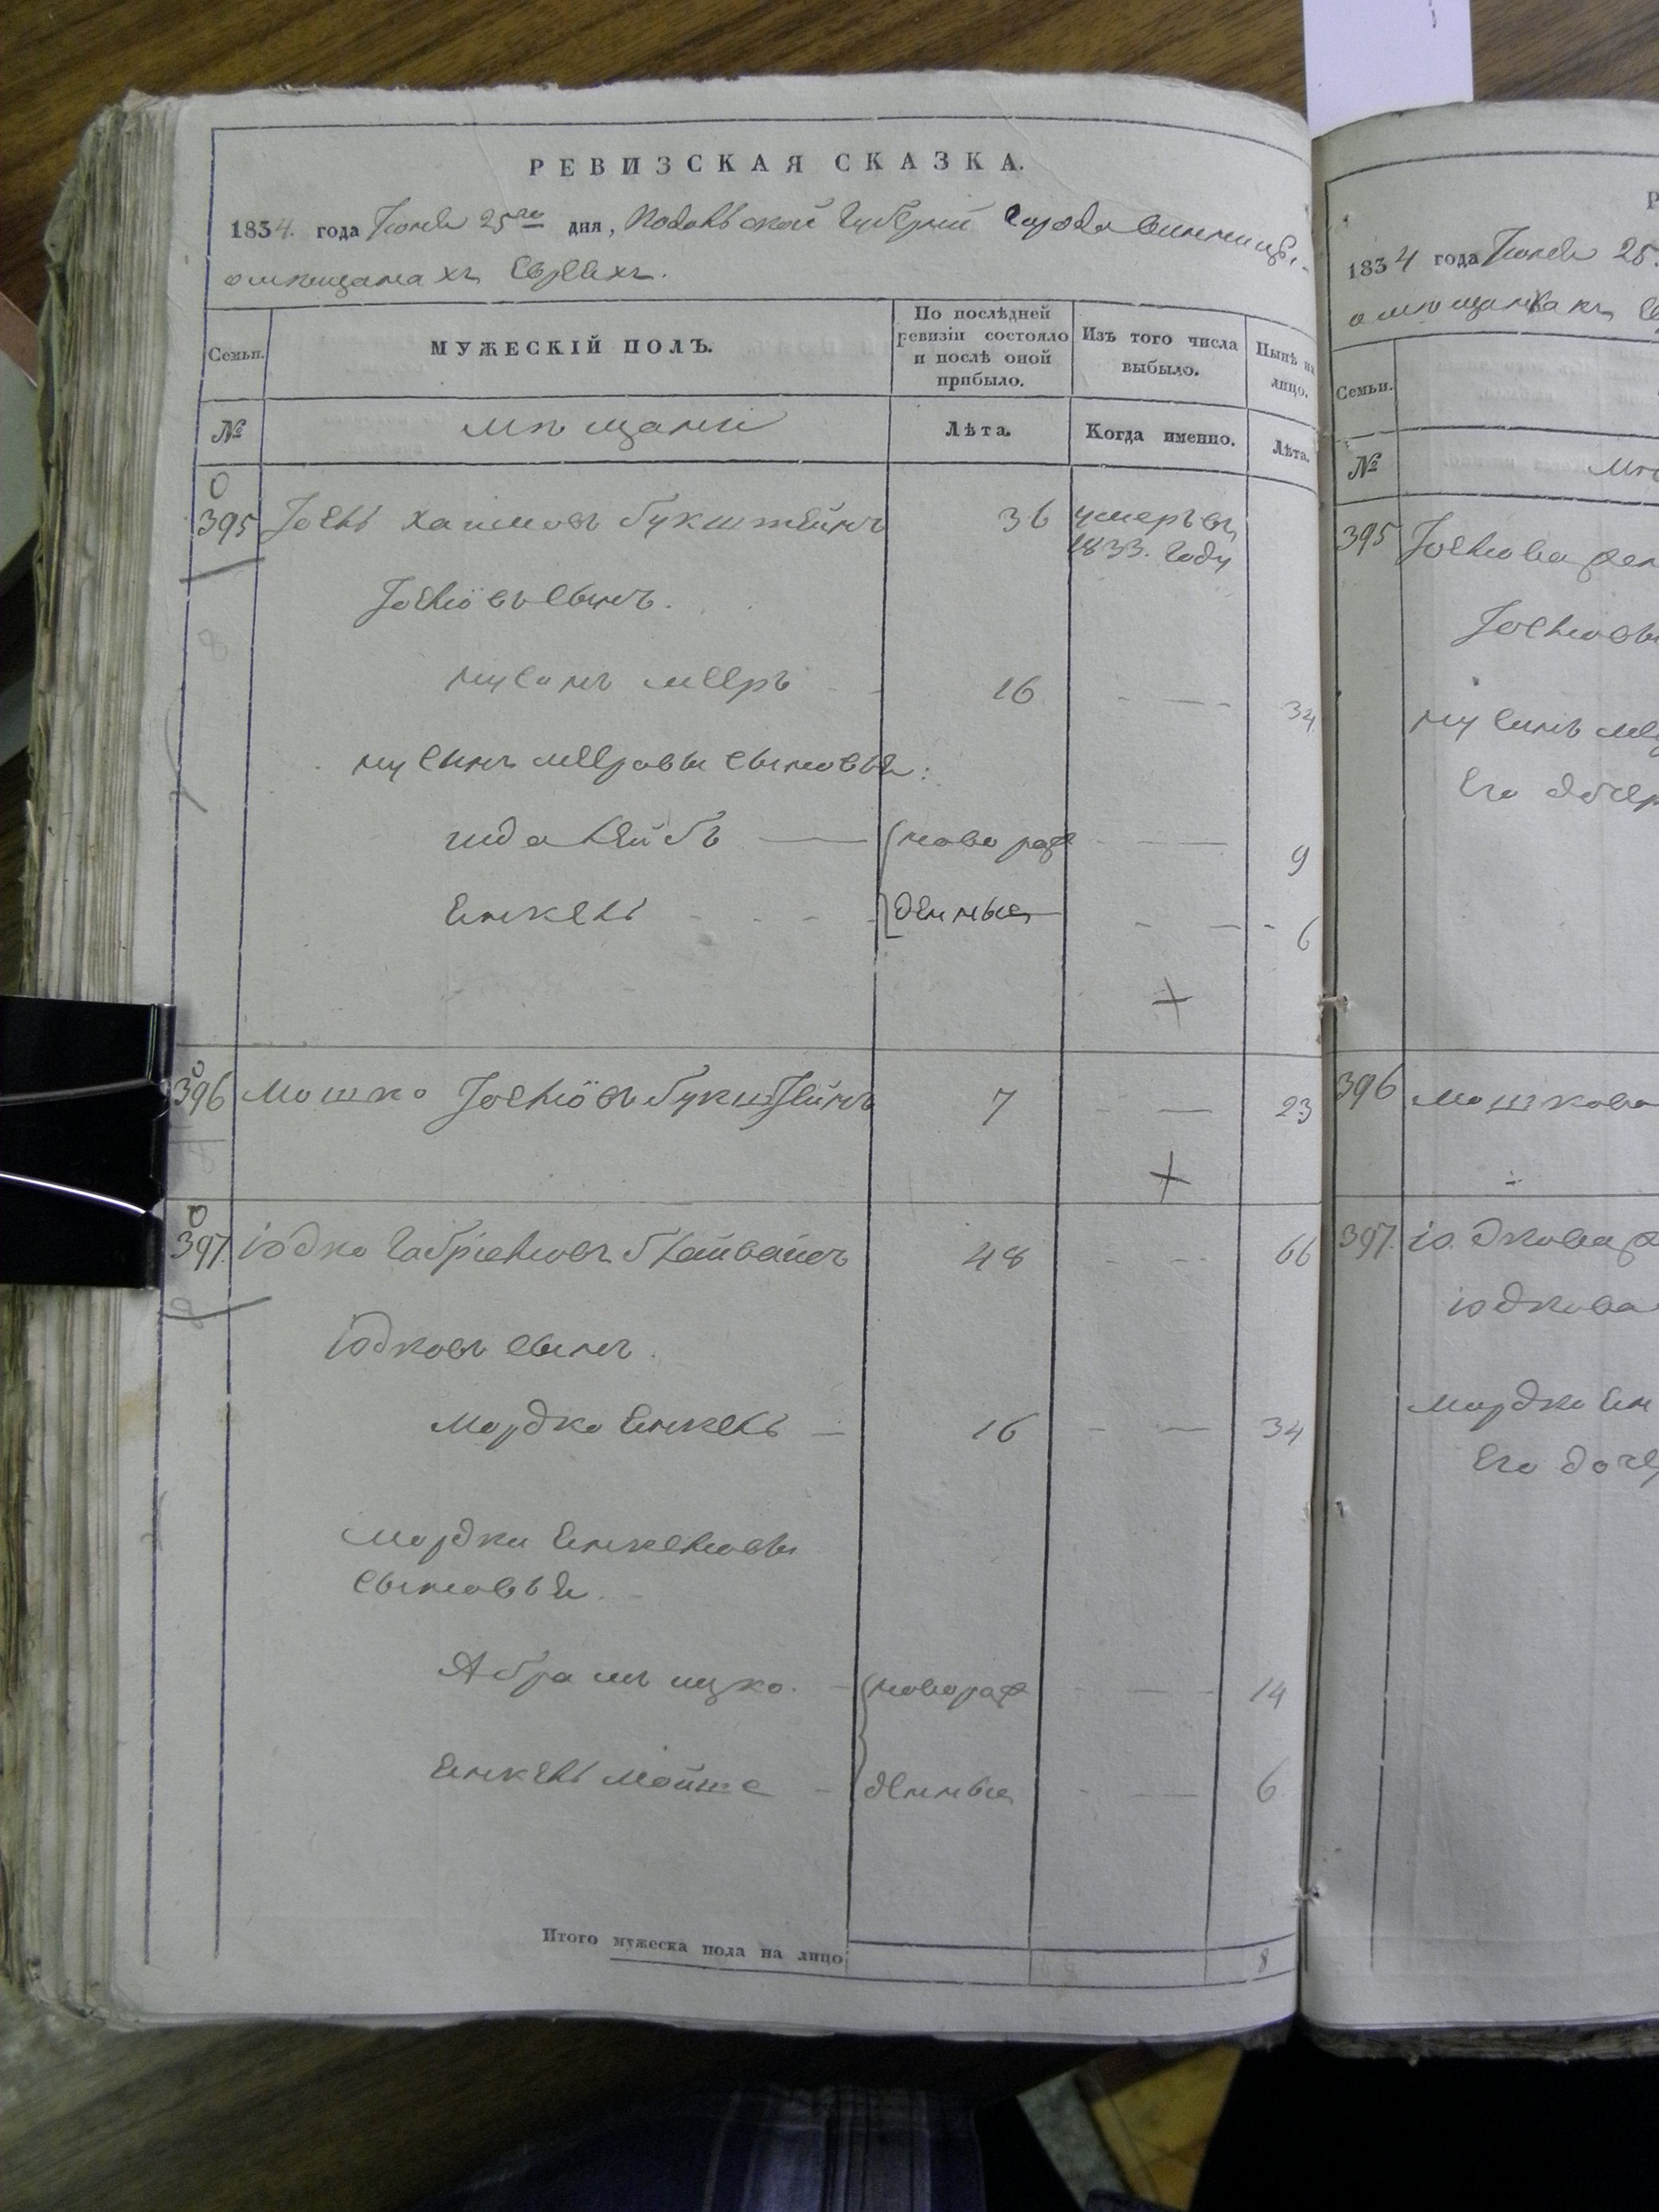 РЕВИЗСКАЯ СКАЗКА.
1834. года Іюня 25го дня, Подольской Губерніи Города Винницы
о мѣщанахъ Евреяхъ.
Семьи.
МУЖЕСКІЙ ПОЛЪ.
По послѣдней ревизіи состояло и послѣ оной прибыло.
Изъ того числа выбыло.
Нынѣ на лицо.
№
мѣщани
Лѣта.
Когда именно.
Лѣта.
395 Іосль Хаимовъ Букштейнъ 36 умеръ въ 1833. Году
Іосліовъ сынъ.
нусинъ мееръ 16 34
нусинъ меировы сыновья:
гидалейбъ новорож 9
Енкель денные 6
396 Мошко Іосліовъ Букштейнъ 7 23
397. іодко Габріеліовъ Блайвайсъ 48 66
іодковъ сынъ.
Мордко Енкель 16 34
Мордки Енкелювы
сыновья.
Абрамъ ицко. новорож 14
Енкель Мойше денные 6
Итого мужеска пола на лицо 8
Р
1834 года Іюня 25.
Семьи.
№
395
396 Мошкова
397. іодкова
іодкова
Мордко Ен
Его доче